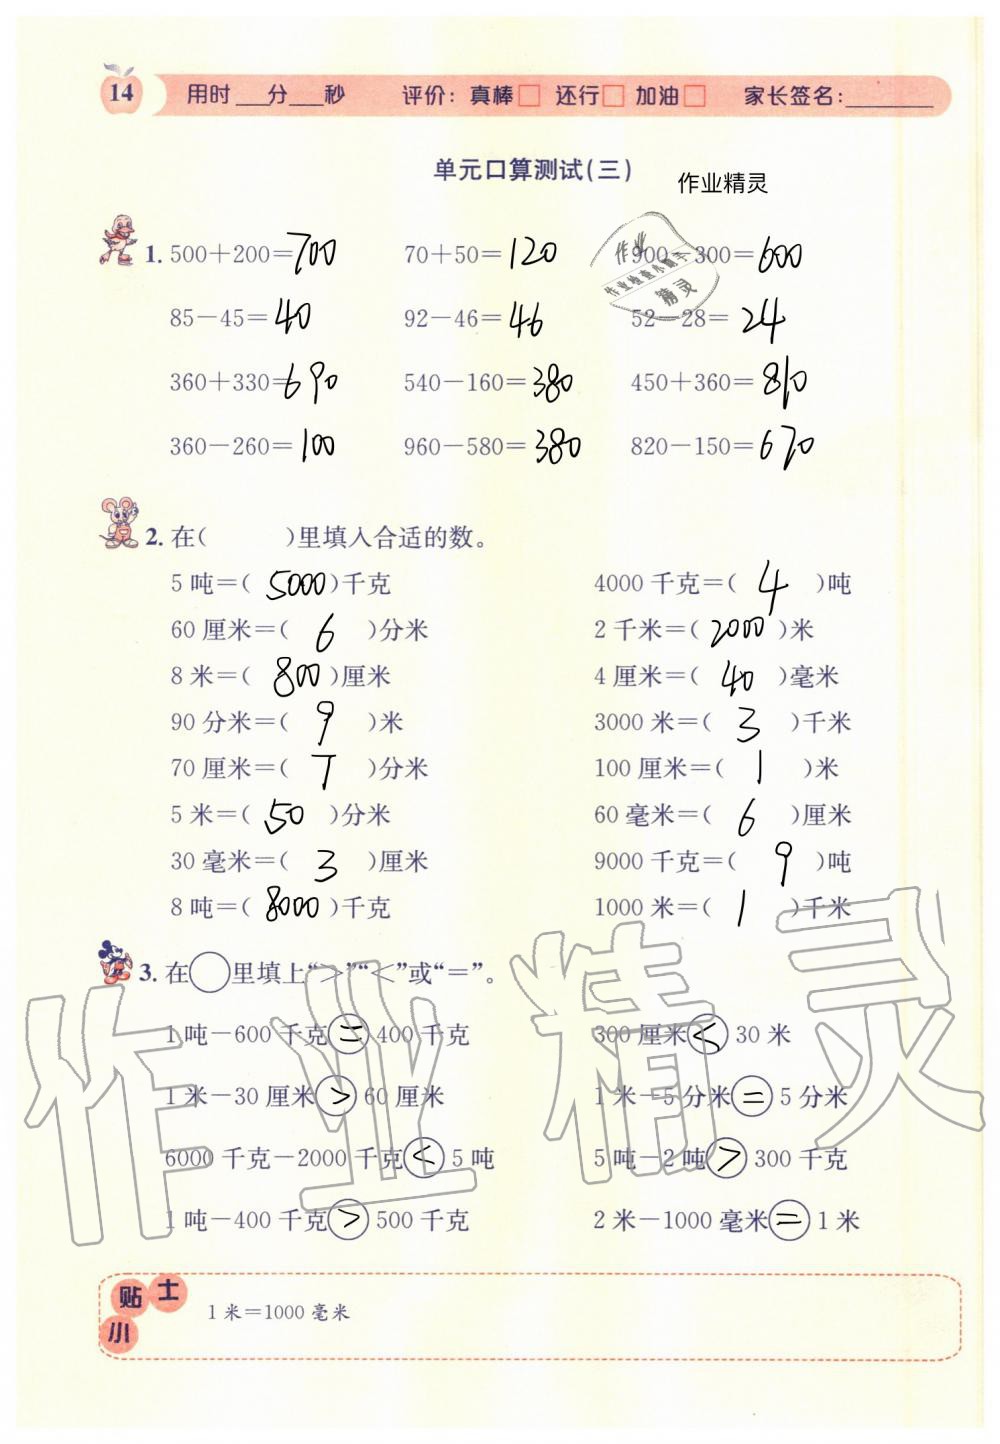 14 用时___分___秒 评价：真棒□ 还行□ 加油□ 家长签名：________
单元口算测试(三)
作业精灵
1. 500+200=700 70+50=120 900-300=600
作业
作业检查小助手
精灵
85-45=40 92-46=46 52-28=24
360+330=690 540-160=380 450+360=810
360-260=100 960-580=380 820-150=670
2. 在( )里填入合适的数。
5吨=(5000)千克 4000千克=(4)吨
60厘米=(6)分米 2千米=(2000)米
8米=(800)厘米 4厘米=(40)毫米
90分米=(9)米 3000米=(3)千米
70厘米=(7)分米 100厘米=(1)米
5米=(50)分米 60毫米=(6)厘米
30毫米=(3)厘米 9000千克=(9)吨
8吨=(8000)千克 1000米=(1)千米
3. 在○里填上“>”“<”或“=”。
1吨-600千克=400千克 300厘米<30米
1米-30厘米>60厘米 1米-5分米=5分米
6000千克-2000千克<5吨 5吨-2吨>300千克
1吨-400千克>500千克 2米-1000毫米=1米
作业精灵
小贴士
1米=1000毫米